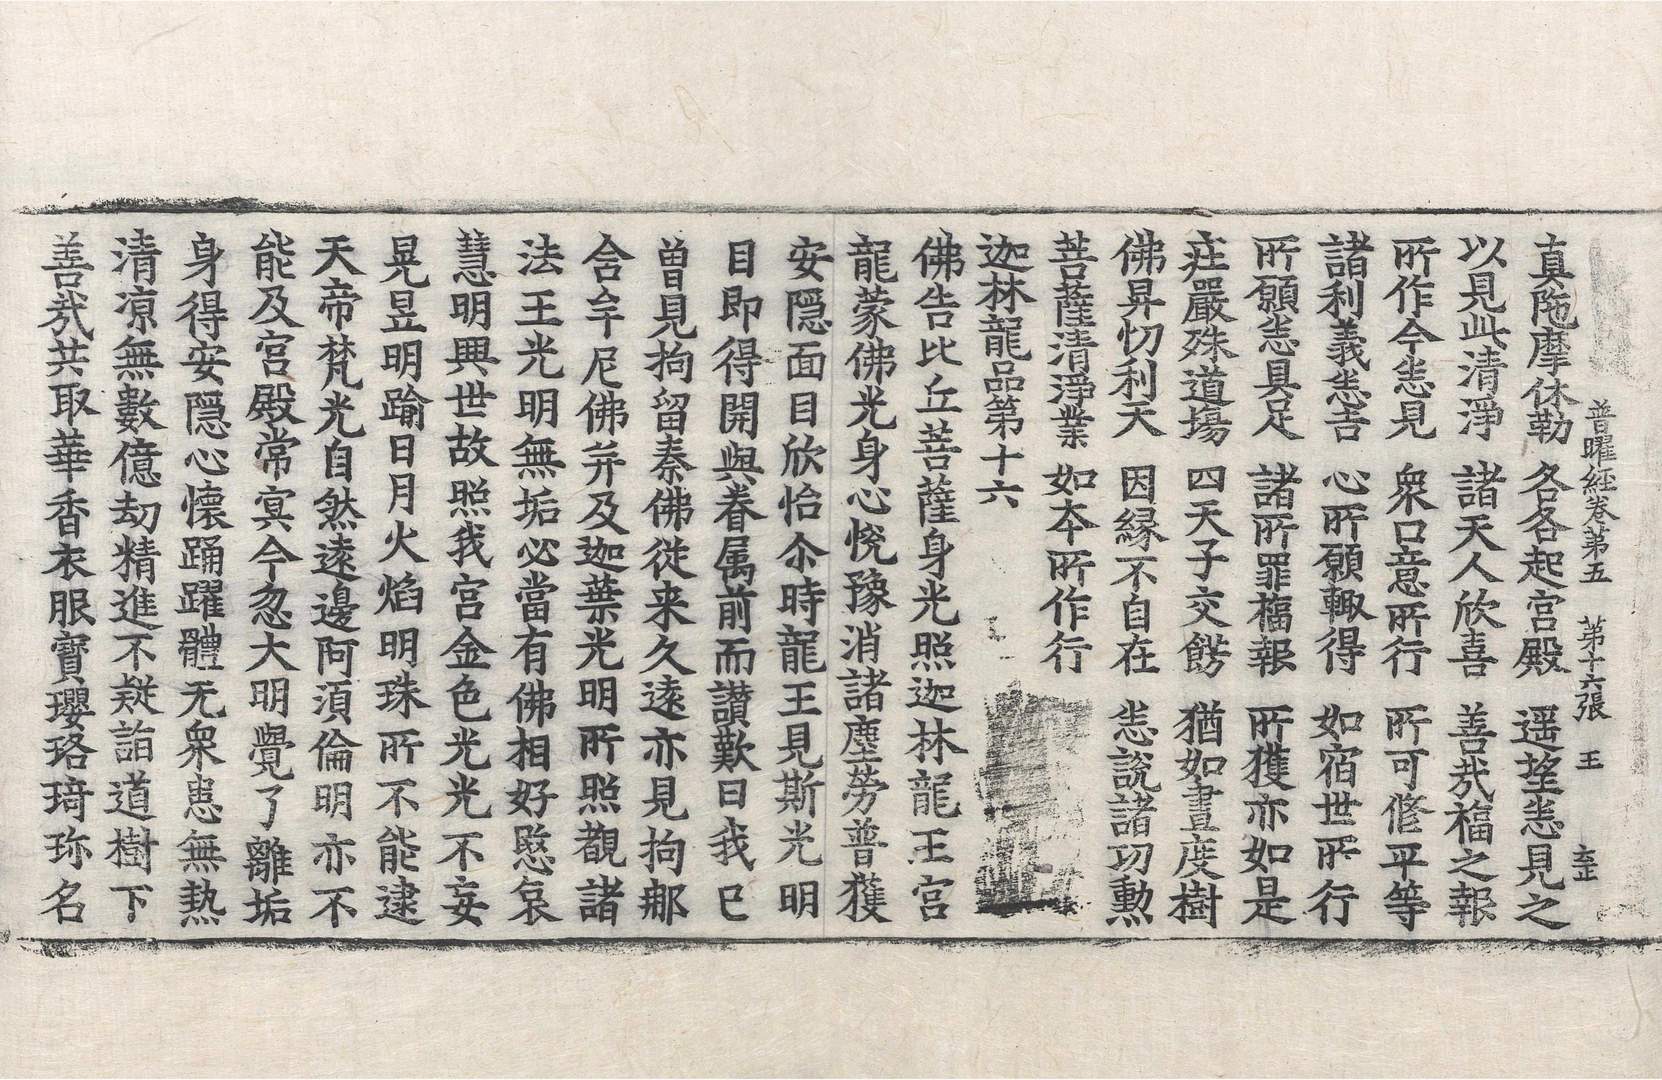 普曜經卷第五　第十六張　王
真陁摩休勒　各各起宮殿　遥望恙見之
以見此清淨　諸天人欣喜　善㢤福之報
所作今恙見　衆口意所行　所可修平等
諸利義恙吉　心所願輙得　如宿世所行
所願恙具足　諸所罪福報　所獲亦如是
庄嚴殊道塲　四天子交餝　猶如晝度樹
佛昇忉利天　因縁不自在　恙說諸功勲
菩薩清淨業　如夲所作行
迦林龍品第十六
佛告比丘菩薩身光照迦林龍王宮
龍蒙佛光身心悅豫消諸塵勞普獲
安隠面目欣怡尒時龍王見斯光明
目即得開與眷属前而讃歎曰我已
曾見拘留秦佛從来久遠亦見拘郍
含牟尼佛并及迦葉光明所照覩諸
法王光明無垢必當有佛相好愍哀
慧明興世故照我宮金色光光不妄
晃昱明踰日月火焰明珠所不能逮
天帝梵光自然遠邊阿湏倫明亦不
能及宮殿常㝠今忽大明覺了離垢
身得安隠心懷踊躍體无衆患無熱
清凉無數億劫精進不疑詣道樹下
善㢤共取華香衣服寳瓔珞琦珎名